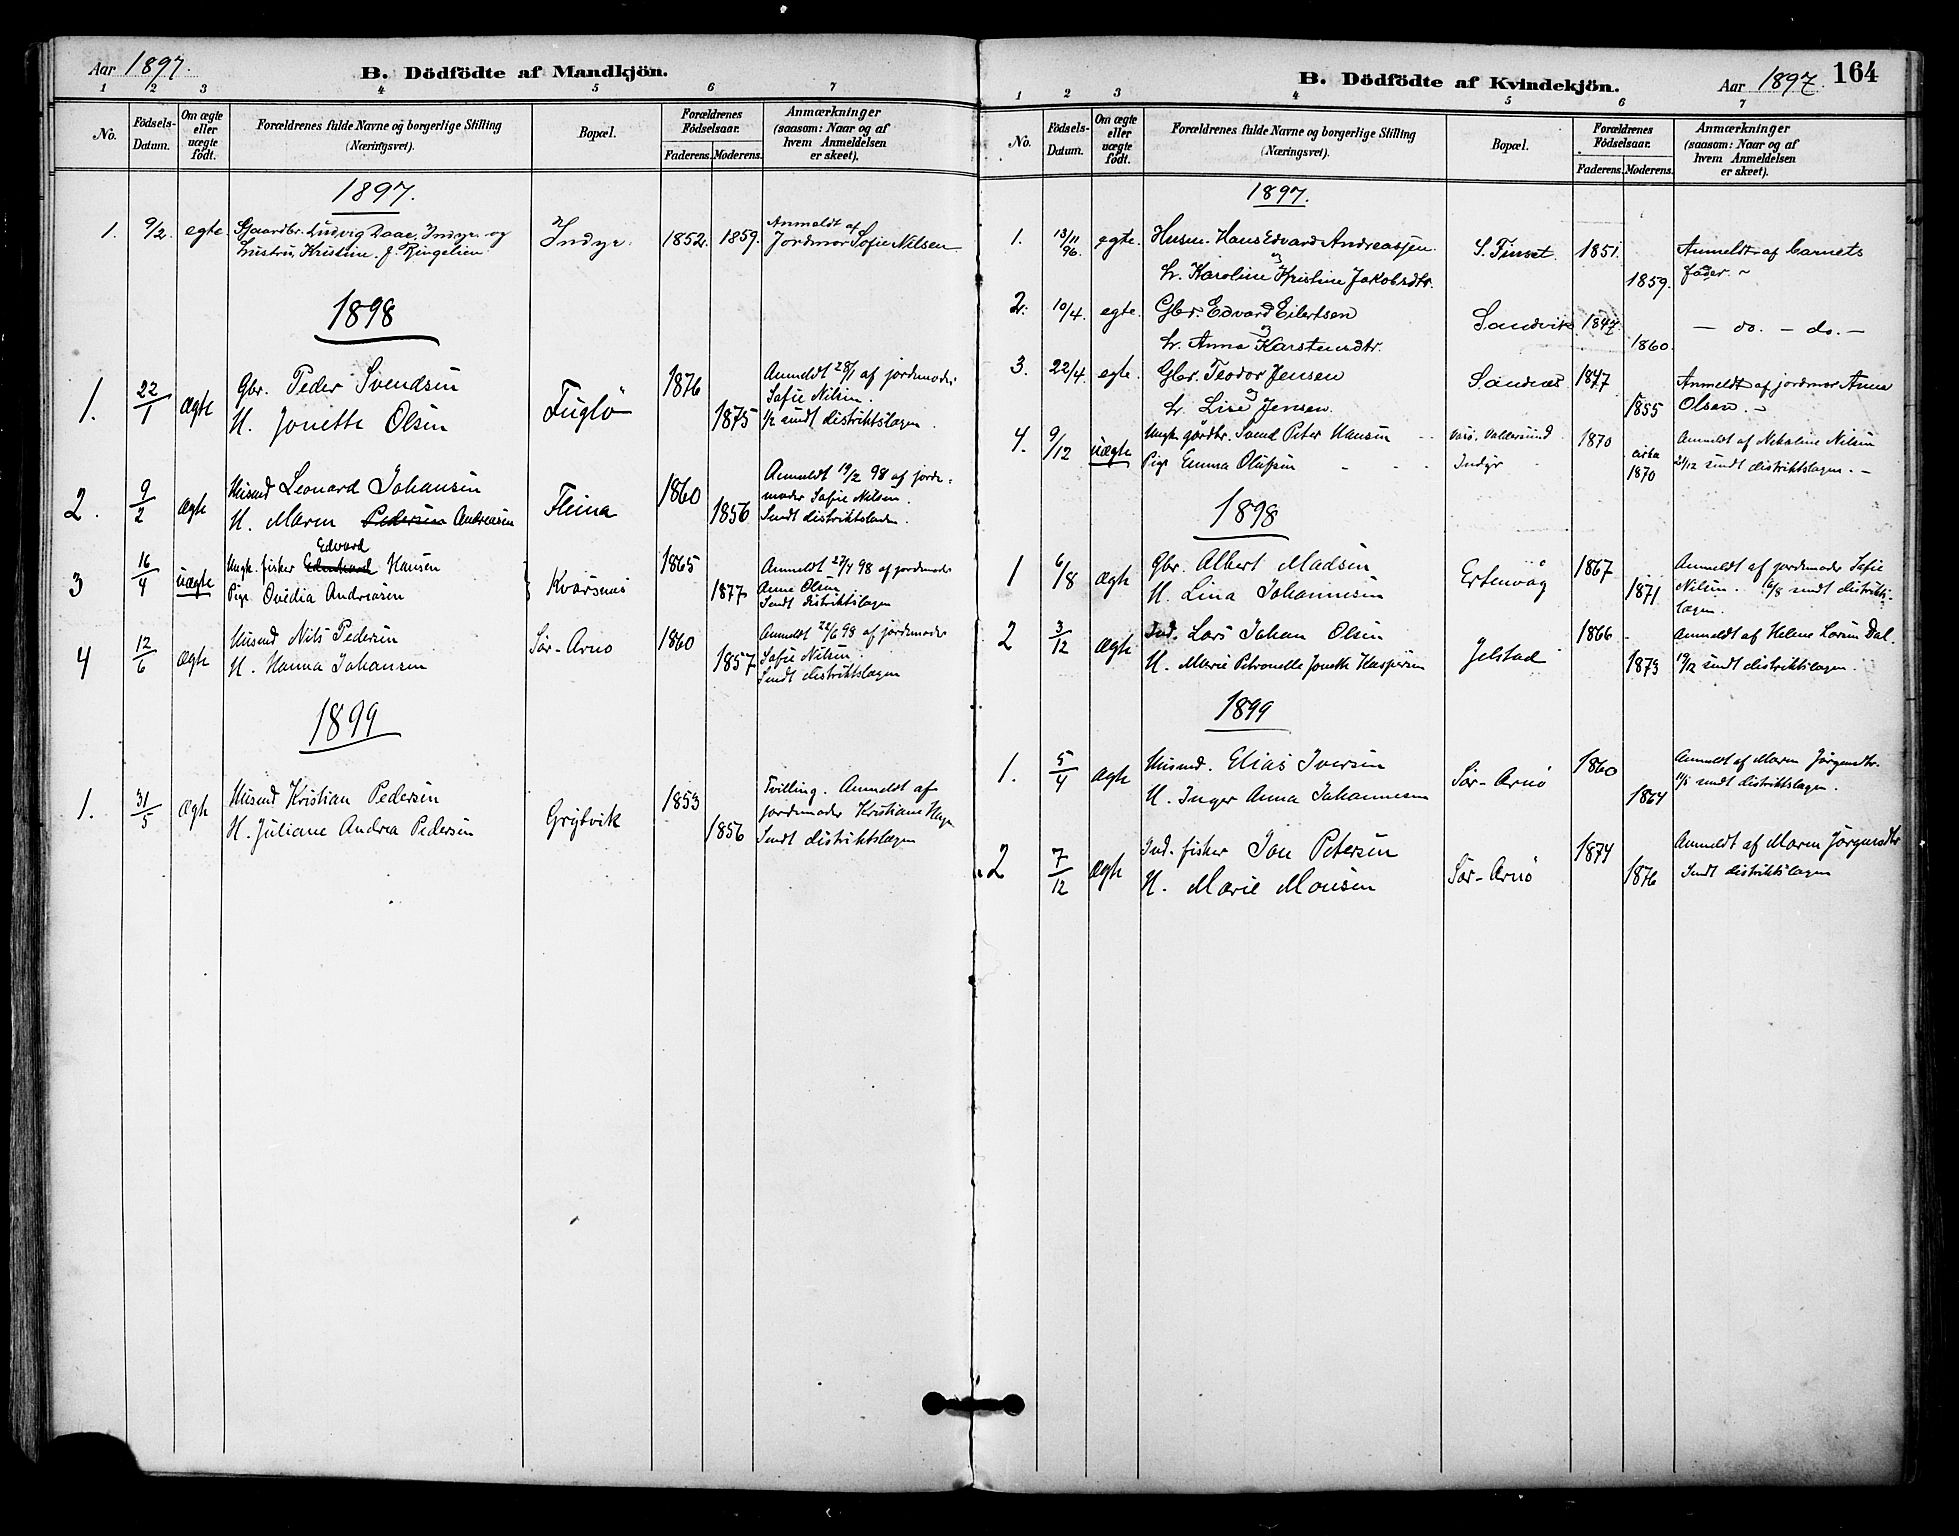 Aar 1897.
B. Dödfödte af Mandkjön.
1 2 3 4 5 6 7
No.
Födsels-
Datum.
Om ægte
eller
uægte
födt.
Forældrenes fulde Navne og borgerlige Stilling
(Næringsvei).
Bopæl.
Forældrenes
Födselsaar.
Faderens. Moderens.
Anmærkninger
(saasom: Naar og af
hvem Anmeldelsen
er skeet).
1897.
1. 9/2. egte. Gaardbr. Ludvig Daae, Indyr og Indyr. 1852. 1859. Anmeldt af
Hustru, Kristine. J. Ringelien Jordmor Sofie Nilsen
1898
1. 22/1 ægte Gbr. Peder Svendsen Fuglö 1876 Anmeldt 28/1 af jordmoder
H. Jonette Olsen 1875 Sofie Nilsen.
1/2 sendt distriktslægen.
2. 9/2 ægte Husmd Leonard Johansen Fleina 1860 Anmeldt 19/2 98 af jorde-
H. Maren Pedersen Andreasen 1856 moder Sofie Nilsen.
Sendt distriktslægen.
Edvard
3 16/4 uægte Ungk. fisker Hansen Kvarsnes 1865 Anmeldt 27/4 98 af jordemoder
Pige Ovidia Andreasen 1877 Anne Olsen
Sendt distriktslægen
4 12/6 ægte Husmd Nils Pedersen Sør-Arnø 1860 Anmeldt 22/6 98 af jordemoder
H. Hanna Johansen 1857 Sofie Nilsen.
Sendt distriktslægen
1899
1. 31/5 ægte Husmd Kristian Pedersen Grytvik 1853 Tvilling. Anmeldt af
H. Juliane Andrea Pedersen 1856 jordemoder Kristiane Hage
Sendt distriktslægen
B. Dödfödte af Kvindekjön.
Aar 1897. 164
1 2 3 4 5 6 7
No.
Födsels-
Datum.
Om ægte
eller
uægte
födt.
Forældrenes fulde Navne og borgerlige Stilling
(Næringsvei).
Bopæl.
Forældrenes
Födselsaar.
Faderens. Moderens.
Anmærkninger
(saasom: Naar og af
hvem Anmeldelsen
er skeet).
1897.
1. 13/11 96. egte. Husm. Hans Edvard Andreassen. S. Finset. 1851. Anmeldt af barnets
og
h. Karoline Kristine Jakobsdtr. 1859. fader.
2. 10/4. egte. Gbr. Edvard Eilertsen Sandvik 1847 — do. — do. —
og
h. Anna Karstensdtr. 1860.
3. 22/4. egte. Gbr. Teodor Jensen Sandnes 1847 Anmeldt af jordmor Anna
og
h. Lise Jensen. 1855 Olsen.
4. 9/12 uægte Ungk. gårdbr. Svend Peter Hansen 1870 Anmeldt af Nekoline Nilsen
Pige Emma Olufsen Indyr cirka 21/12 sendt distriktslægen.
1870
1898
1 6/8 ægte Gbr. Albert Madsen Ertenvåg 1867 Anmeldt af jordemoder Sofie
H. Lina Johannesen 1871 Nilsen. 16/8 sendt distrikts-
lægen.
2 3/12 ægte Ind. Lars Johan Olsen Jelstad 1866 Anmeldt af Helene Larsen Dal.
H. Marie Petronelle Jonette Kaspersen 1873 19/12 sendt distriktslægen.
1899
1. 5/4 ægte Husmd. Elias Iversen Sør-Arnø 1860 Anmeldt af Maren Jörgensdtr.
H. Inger Anna Johannesen 1864 11/5 sendt distriktslægen.
2 7/12 ægte Ind. fisker Jon Petersen Sør-Arnø 1874 Anmeldt af Maren Jörgensdtr
H. Marie Monsen 1876 Sendt distriktslægen